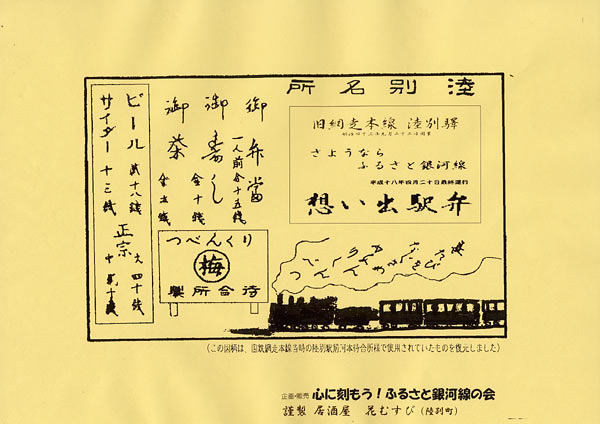 所名別陸
旧網走本線 陸別驛
明治四十三年九月二十二日開業
さようなら
ふるさと銀河線
平成十八年四月二十日最終運行
想い出駅弁
御弁當
一人前金十五銭
御寿し
金十銭
御茶
金五銭
ビール 貮十八銭
サイダー 十三銭
正宗 大 四十銭
中 貮十銭
つべんくり
梅
製所合待
(この図柄は、国鉄網走本線当時の陸別駅前河本待合所様で使用されていたものを復元しました)
企画・販売 心に刻もう!ふるさと銀河線の会
謹製 居酒屋 花むすび (陸別町)